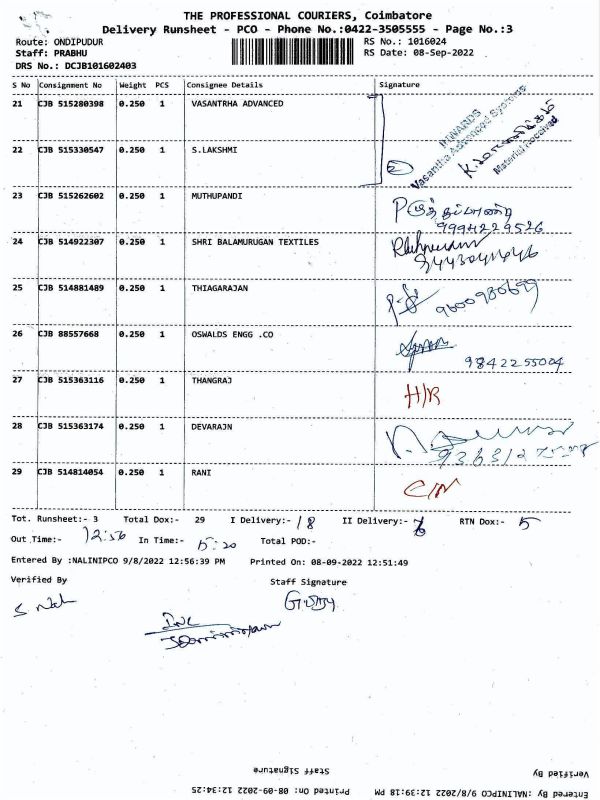 THE PROFESSIONAL COURIERS, Coimbatore
Delivery Runsheet - PCO - Phone No.:0422-3505555 - Page No.:3
Route: ONDIPUDUR RS No.: 1016024
Staff: PRABHU RS Date: 08-Sep-2022
DRS No.: DCJB101602403
S No Consignment No Weight PCS Consignee Details Signature
21 CJB 515280398 0.250 1 VASANTRHA ADVANCED
Vasantha Advanced Systems
Material Received
22 CJB 515330547 0.250 1 S.LAKSHMI
23 CJB 515262602 0.250 1 MUTHUPANDI
9994229526
24 CJB 514922307 0.250 1 SHRI BALAMURUGAN TEXTILES
25 CJB 514881489 0.250 1 THIAGARAJAN
9600980699
26 CJB 88557668 0.250 1 OSWALDS ENGG .CO
9842255004
27 CJB 515363116 0.250 1 THANGRAJ H/R
28 CJB 515363174 0.250 1 DEVARAJN
29 CJB 514814054 0.250 1 RANI
Tot. Runsheet:- 3 Total Dox:- 29 I Delivery:- 18 II Delivery:- RTN Dox:- 5
Out Time:- 12:56 In Time:- 15:20 Total POD:-
Entered By :NALINIPCO 9/8/2022 12:56:39 PM Printed On: 08-09-2022 12:51:49
Verified By Staff Signature
Staff Signature Verified By
Printed On: 08-09-2022 12:34:25 Entered By :NALINIPCO 9/8/2022 12:39:18 PM